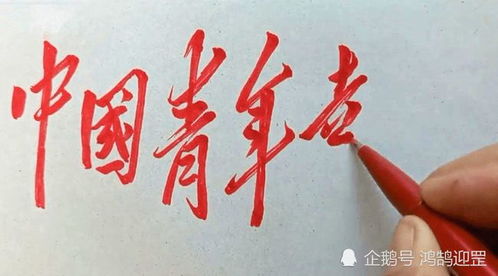 中國青年
企鹅号 鸿鹄迎罡